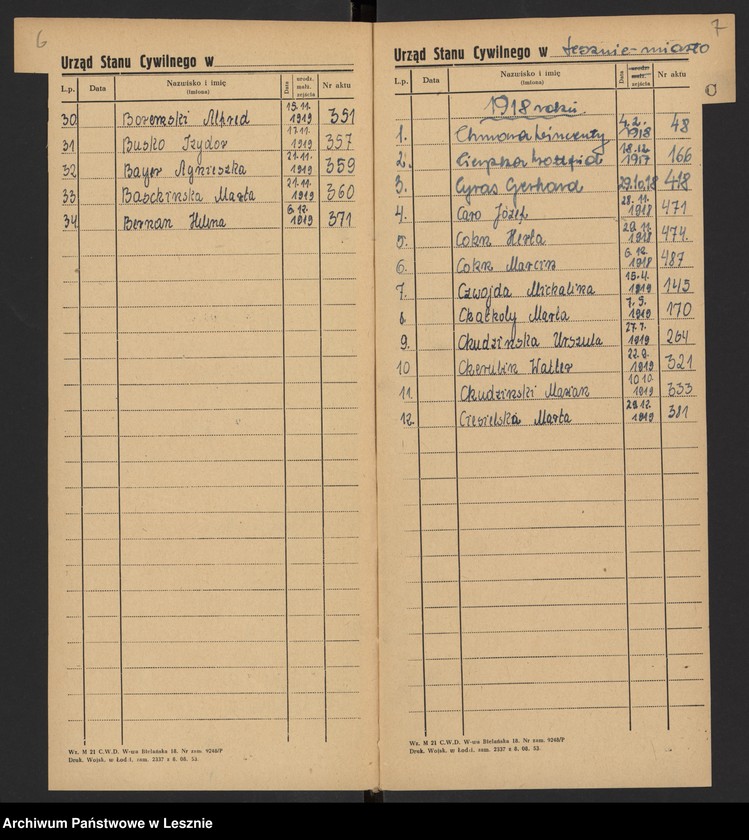 6
Urząd Stanu Cywilnego w
L.p. Data Nazwisko i imię (imiona) Data urodz. małż. zejścia Nr aktu
30 Boremski Alfred 15.11. 1919 351
31 Busko Izydor 17.11. 1919 357
32 Bayer Agnieszka 21.11. 1919 359
33 Baschinska Marta 21.11. 1919 360
34 Bernan Helena 6.12. 1919 371
Wz. M 21 C.W.D. W-wa Bielańska 18. Nr zam. 9248/P
Druk. Wojsk. w Łodzi. zam. 2337 z 8. 08. 53.
7
Urząd Stanu Cywilnego w Lesznie-miasto
L.p. Data Nazwisko i imię (imiona) Data urodz. małż. zejścia Nr aktu
C
1918 roku.
1. Chmara Wincenty 4.2. 1918 48
2. 18.12. 1917 166
3. Cyras Gerhard 29.10.18 418
4. Caro Józef 28.11. 1918 471
5. Cohn Herta 29.11. 1918 474.
6. Cohn Marcin 6.12. 1918 487
7. Czwojda Michalina 15.4. 1919 145
8 Chachoły Marta 7.5. 1919 170
9. Chudzinska Urszula 27.7. 1919 264
10 Cherubin Walter 22.9. 1919 321
11. Chudzinski Marian 10.10. 1919 333
12. Ciesielska Marta 29.12. 1919 381
Wz. M 21 C.W.D. W-wa Bielańska 18. Nr zam. 9248/P
Druk. Wojsk. w Łodzi. zam. 2337 z 8. 08. 53.
Archiwum Państwowe w Lesznie